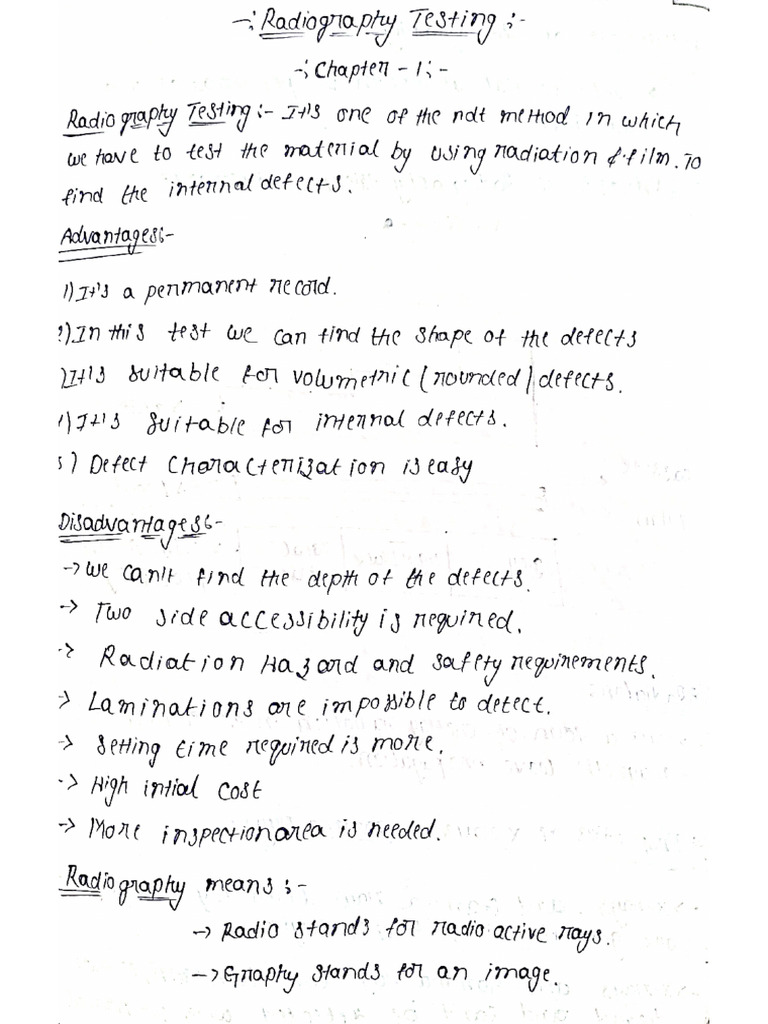 -:Radiography Testing:-
-:Chapter-1:-
Radiography Testing:- It's one of the ndt method in which
we have to test the material by using radiation & film. To
find the internal defects.
Advantages:-
1) It's a permanent record.
2) In this test we can find the shape of the defects
3) It's suitable for volumetric (rounded) defects.
4) It's suitable for internal defects.
5) Defect characterization is easy
Disadvantages:-
-> we can't find the depth of the defects.
-> Two side accessibility is required.
-> Radiation Hazard and safety requirements.
-> Laminations are impossible to detect.
-> Setting time required is more.
-> High intial cost
-> More inspection area is needed.
Radiography means:-
-> Radio stands for radio active rays.
-> Graphy stands for an image.